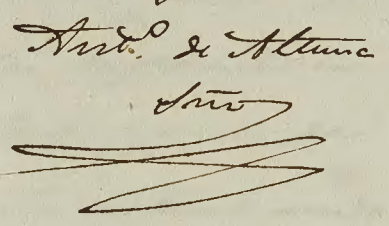 Antº. de Altuna
Srio